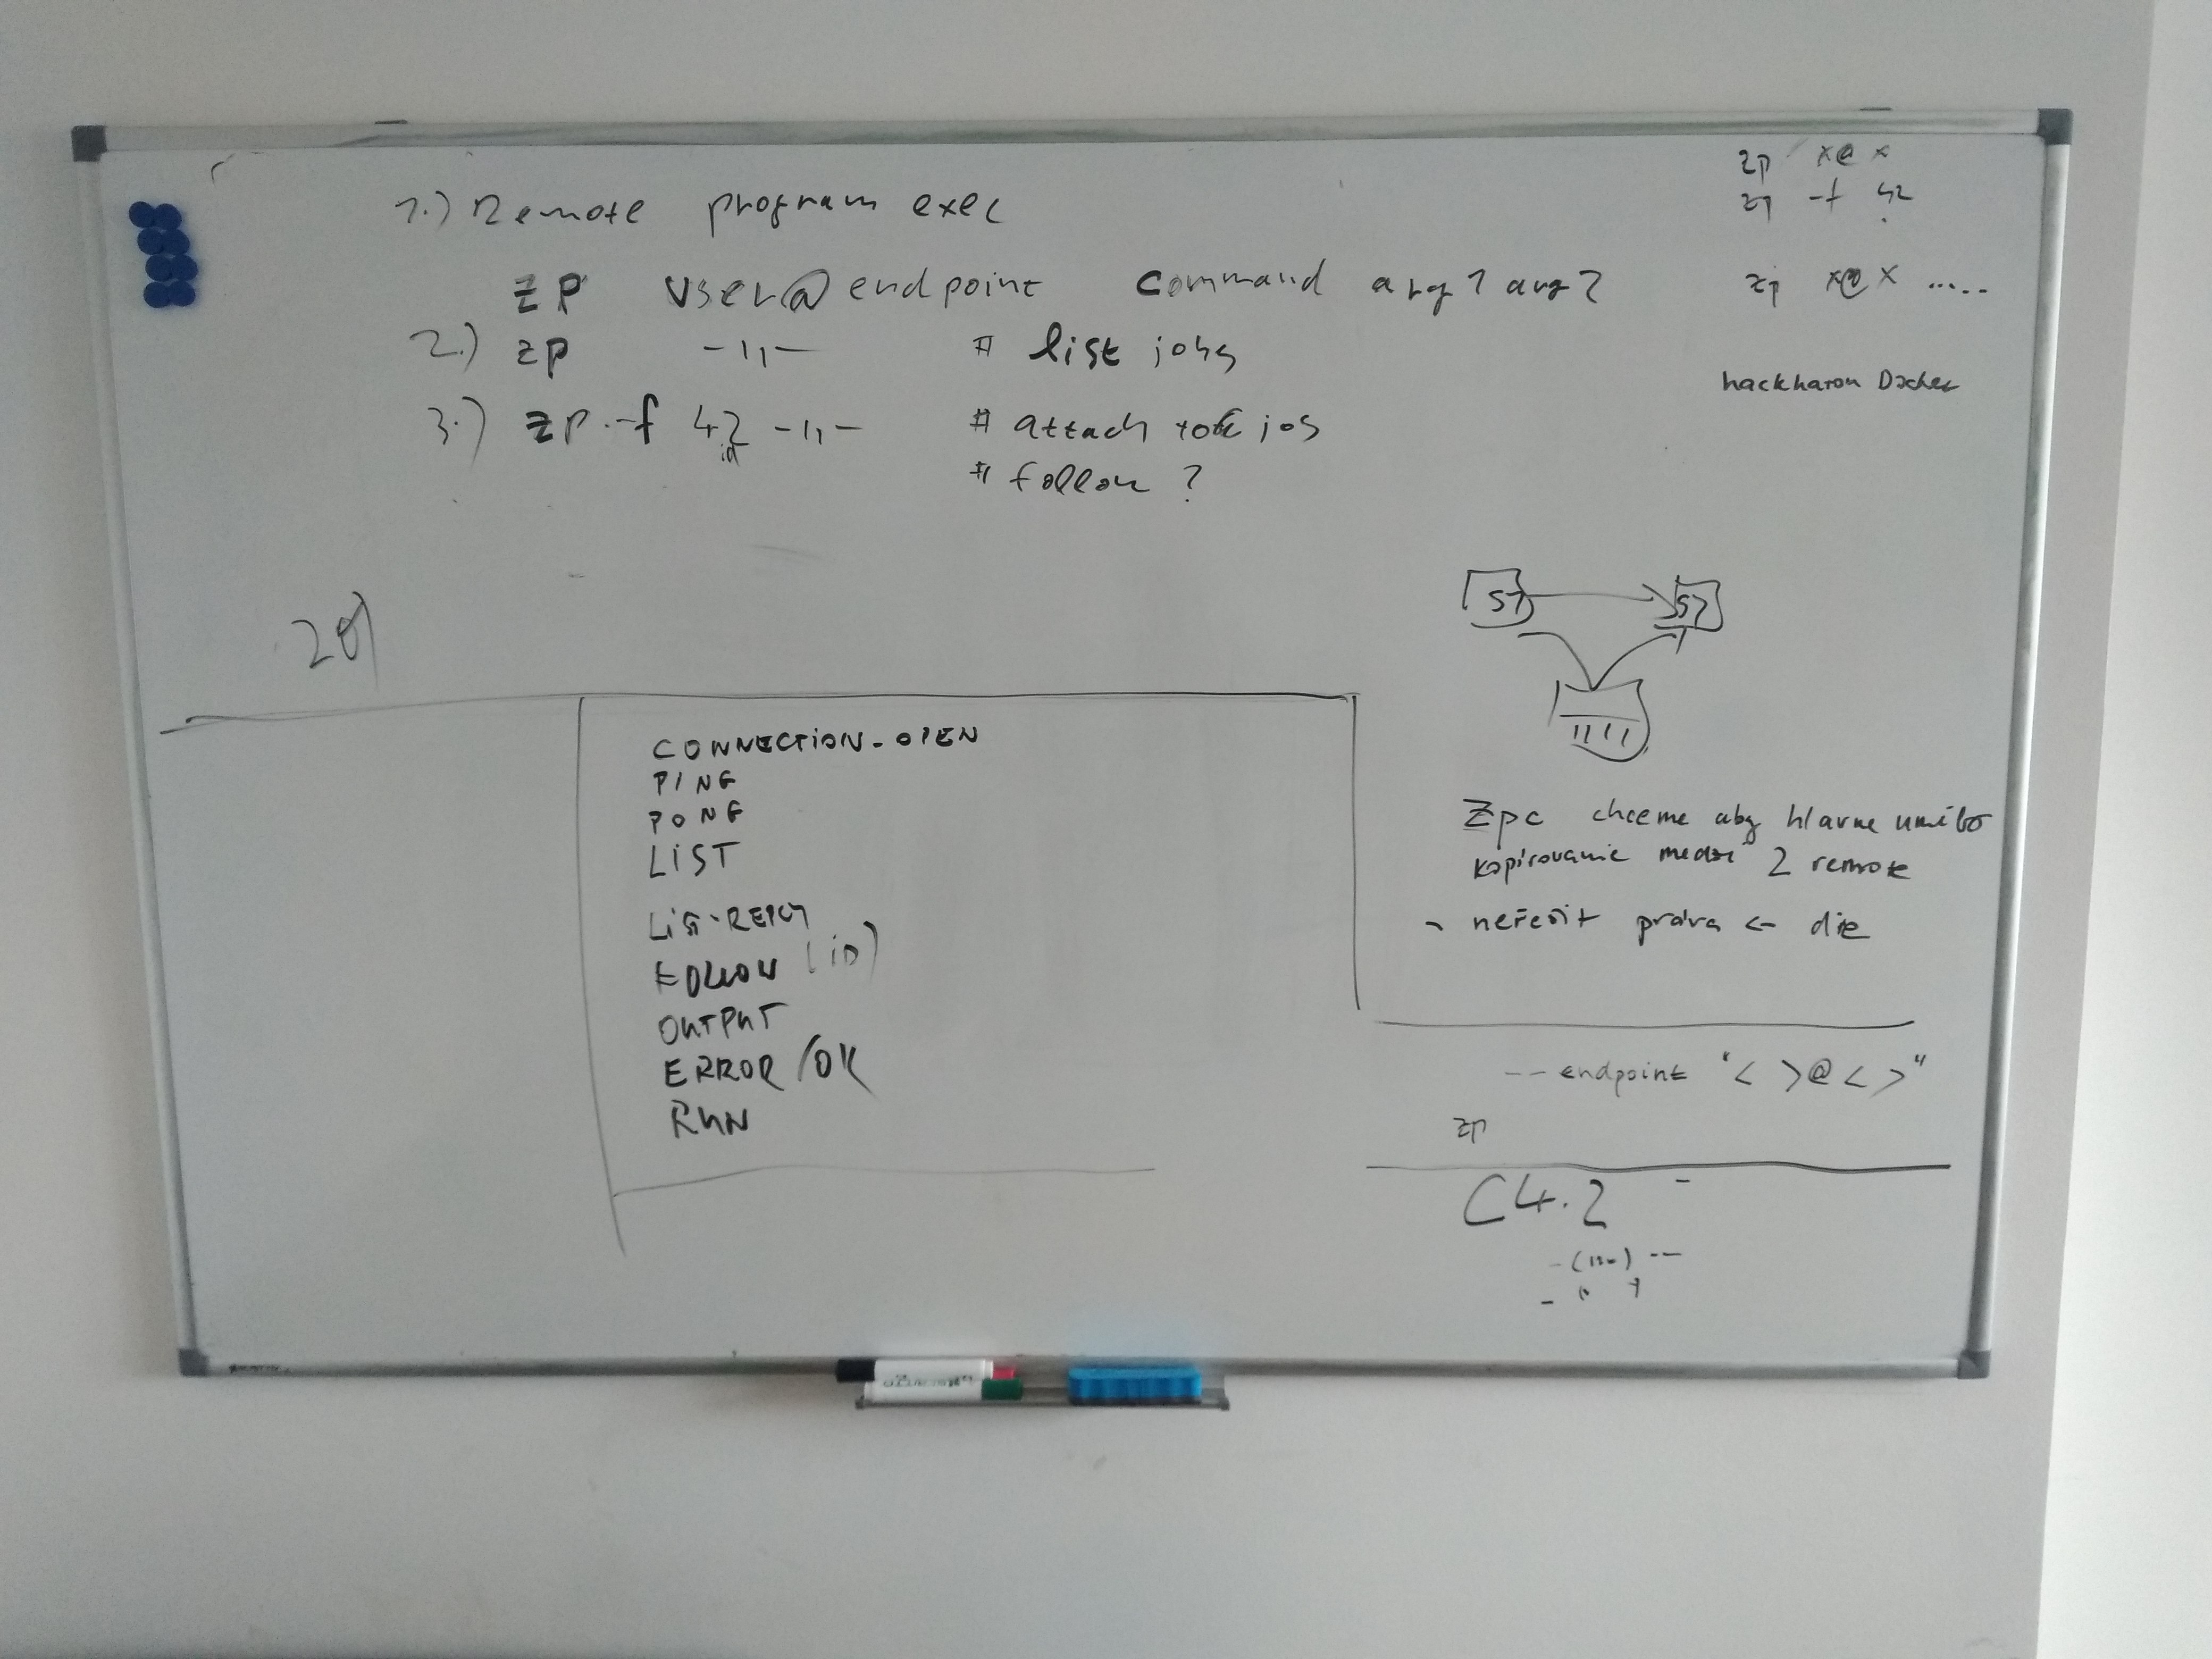 1.) Remote program exec
zp user@endpoint command arg1 arg2
2.) zp -11- # list jobs
3.) zp -f 42 -11- # attach to job
id
# follow ?
zp x@x
zp -f 42
zp x@x .....
hackharon Docker
20)
S1 S2
CONNECTION-OPEN
PING
PONG
LIST
LIST-REPLY
FOLLOW (ID)
OUTPUT
ERROR/OK
RUN
Zpc chceme aby hlavne umělo
kopírovanie medzi 2 remote
- neřešit práva <-
--endpoint "< >@< >"
zp
C4.2